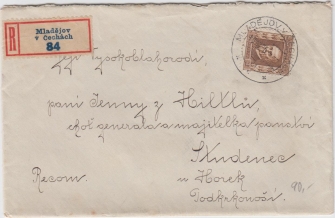 R
Mladějov
v Čechách
84
MLADĚJOV
Její Vysokoblahorodí
paní Jenny z Hiltlů,
choť generála a majitelka panství
Studenec
u Horek
Recom.
Podkrkonoší
90,-